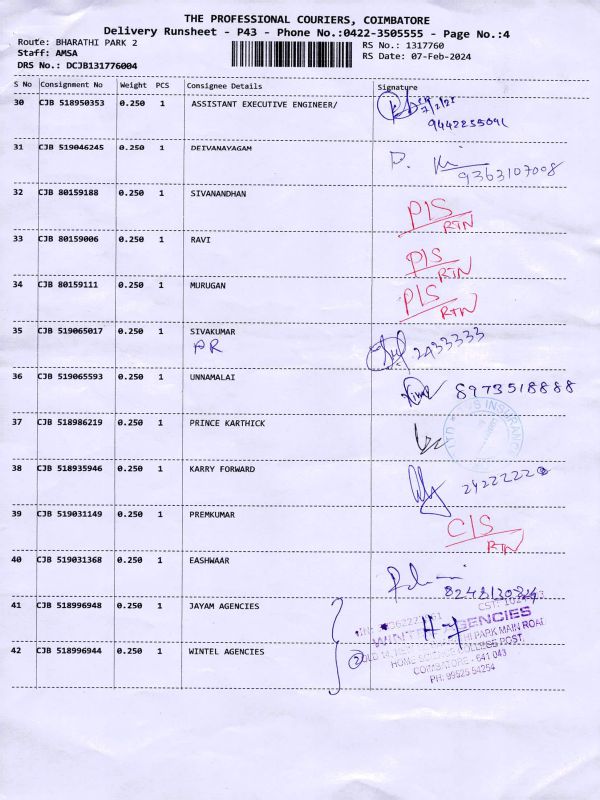 THE PROFESSIONAL COURIERS, COIMBATORE
Delivery Runsheet - P43 - Phone No.:0422-3505555 - Page No.:4
Route: BHARATHI PARK 2 RS No.: 1317760
Staff: AMSA RS Date: 07-Feb-2024
DRS No.: DCJB131776004
S No Consignment No Weight PCS Consignee Details Signature
30 CJB 518950353 0.250 1 ASSISTANT EXECUTIVE ENGINEER/
31 CJB 519046245 0.250 1 DEIVANAYAGAM
9363107008
32 CJB 80159188 0.250 1 SIVANANDHAN PIS
RTN
33 CJB 80159006 0.250 1 RAVI PIS
RTN
34 CJB 80159111 0.250 1 MURUGAN PIS
RTN
35 CJB 519065017 0.250 1 SIVAKUMAR 2433333
PR
36 CJB 519065593 0.250 1 UNNAMALAI 8973518888
37 CJB 518986219 0.250 1 PRINCE KARTHICK
INSURANCE
38 CJB 518935946 0.250 1 KARRY FORWARD
39 CJB 519031149 0.250 1 PREMKUMAR CIS
RTN
40 CJB 519031368 0.250 1 EASHWAAR
41 CJB 518996948 0.250 1 JAYAM AGENCIES
AGENCIES
PARK MAIN ROAD
42 CJB 518996944 0.250 1 WINTEL AGENCIES 2
COLLEGE POST,
COIMBATORE - 641 043
PH: 99525 54254